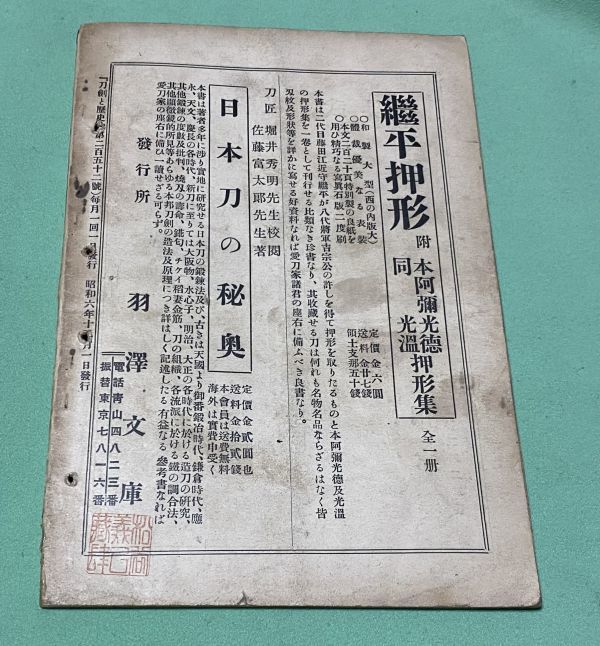 繼平押形 附 本阿彌光德 同 光溫 押形集 全一册
○和製大型(西の内版大)
○體裁優美なる表裝
○本文二百二十頁特別製の良紙を
○用ひ精巧なる寫眞石版二度刷
定價金六圓
送料金廿七錢
領土支那五十錢
本書は二代目藤田江近守繼平が八代將軍吉宗公の許しを得て押形を取りたるものと本阿彌光德及光溫
の押形集を一卷として刊行せる比類なき珍書なり、其收藏せる刀は何れも名物名品ならざるはなく皆
刄紋及形狀等を詳かに寫せる好資料なれば愛刀家諸君の座右に備ふべき良書なり。
刀匠 堀井秀明先生校閱
佐藤富太郎先生著
日本刀の秘奥
定價金貳圓也
送料金拾貳錢
本會員は送費無料
海外は實費申受く
本書は著者多年に涉り實地に硏究せる日本刀の鍛鍊法及び、古きは天國より御番鍛冶時代、鎌倉時代、應
永、天文、慶長の各時代、新刀に至りては大阪物、水心子、明治、大正の各時代に於ける造刀の硏究、
其他鍛鍊の度數及批判、燒刄の壽命、銑旬、チケイ稻妻金筋、刀の組織、各流派に於ける鐵の調合法、
其他顯微鏡的所見等あらゆる本邦刀劍の造法及原理につき詳はしく記述したる有益なる參考書なれば
愛刀家の座右に備ひ一讀せざる可らず。
發行所 羽澤文庫
電話靑山四八二三番
振替東京七八一六番
『刀劍と歷史』第二百五十一號）每月一回一日發行 昭和六年十
月一日發行